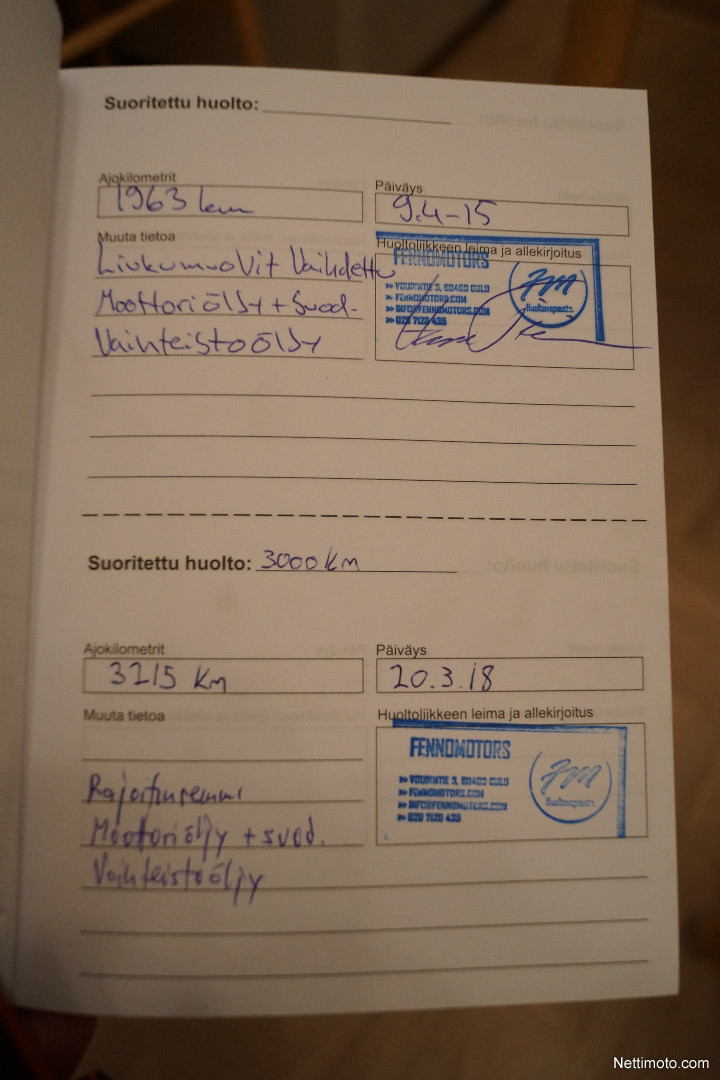 Suoritettu huolto:
Ajokilometrit
1963 km
Päiväys
9.4-15
Muuta tietoa
Liukumuovit Vaihdettu
Moottoriöljy + Suod.
Vaihteistoöljy
Huoltoliikkeen leima ja allekirjoitus
FENNOMOTORS
>> VOUDINTIE 3, 90400 OULU
>> FENNOMOTORS.COM
>> INFO@FENNOMOTORS.COM
>> 020 7120 435
FM
Huoltovapautta.
Suoritettu huolto: 3000 km
Ajokilometrit
3215 km
Päiväys
20.3.18
Muuta tietoa
Moottoriöljy + suod.
Vaihteistoöljy
Huoltoliikkeen leima ja allekirjoitus
FENNOMOTORS
>> VOUDINTIE 3, 90400 OULU
>> FENNOMOTORS.COM
>> INFO@FENNOMOTORS.COM
>> 020 7120 435
FM
Huoltovapautta.
Nettimoto.com